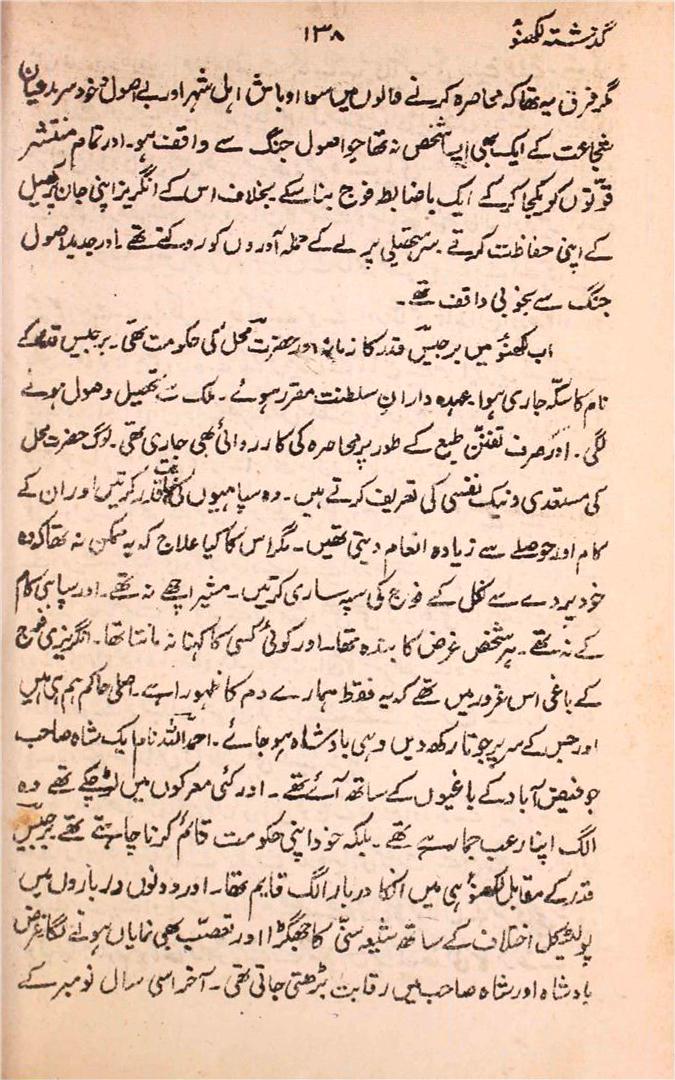 گذشتہ لکھنؤ ۱۳۸
مگر فرق یہ تھا کہ محاصرہ کرنے والوں میں سوا اوباش اہل شہر اور بے اصول و خود سر مدعیان
شجاعت کے ایک بھی ایسا شخص نہ تھا جو اصول جنگ سے واقف ہو۔ اور تمام منتشر
قوتوں کو یکجا کر کے ایک باضابطہ فوج بنا سکے بخلاف اس کے انگریز اپنی جان پر کھیل
کے اپنی حفاظت کرتے۔ سر ہتھیلی پر لے کے حملہ آوروں کو روکتے تھے۔ اور جدید اصول
جنگ سے بخوبی واقف تھے۔
اب لکھنؤ میں برجیس قدر کا زمانہ اور حضرت محل کی حکومت تھی۔ برجیس قدر کے
نام کا سکّہ جاری ہوا۔ عہدہ دارانِ سلطنت مقرر ہوئے۔ ملک سے تحصیل وصول ہونے
لگی۔ اور صرف تفنّن طبع کے طور پر محاصرہ کی کارروائی بھی جاری تھی۔ لوگ حضرت محل
کی مستعدی و نیک نفسی کی تعریف کرتے ہیں۔ وہ سپاہیوں کی نہایت قدر کرتیں اور ان کے
کام اور حوصلے سے زیادہ انعام دیتی تھیں۔ مگر اس کا کیا علاج کہ یہ ممکن نہ تھا کہ وہ
خود پردے سے نکل کے فوج کی سپہ سالاری کرتیں۔ مشیر اچھے نہ تھے۔ اور سپاہی کام
کے نہ تھے۔ ہر شخص غرض کا بندہ تھا۔ اور کوئی کسی کا کہنا نہ مانتا تھا۔ انگریزی فوج
کے باغی اس غرور میں تھے کہ یہ فقط ہمارے دم کا ظہورا ہے۔ اصلی حاکم ہم ہی ہیں
اور جس کے سر پر جوتا رکھ دیں وہی بادشاہ ہو جائے۔ احمد اللہ نام ایک شاہ صاحب
جو فیض آباد کے باغیوں کے ساتھ آئے تھے۔ اور کئی معرکوں میں لڑ چکے تھے وہ
الگ اپنا رعب جما رہے تھے۔ بلکہ خود اپنی حکومت قائم کرنا چاہتے تھے برجیس
قدر کے مقابل لکھنؤ ہی میں انکا دربار الگ قایم تھا۔ اور دونوں درباروں میں
پولٹیکل اختلاف کے ساتھ شیعہ سنّی کا جھگڑا اور تعصّب بھی نمایاں ہونے لگا غرض
بادشاہ اور شاہ صاحب میں رقابت بڑھتی جاتی تھی۔ آخر اسی سال نومبر کے